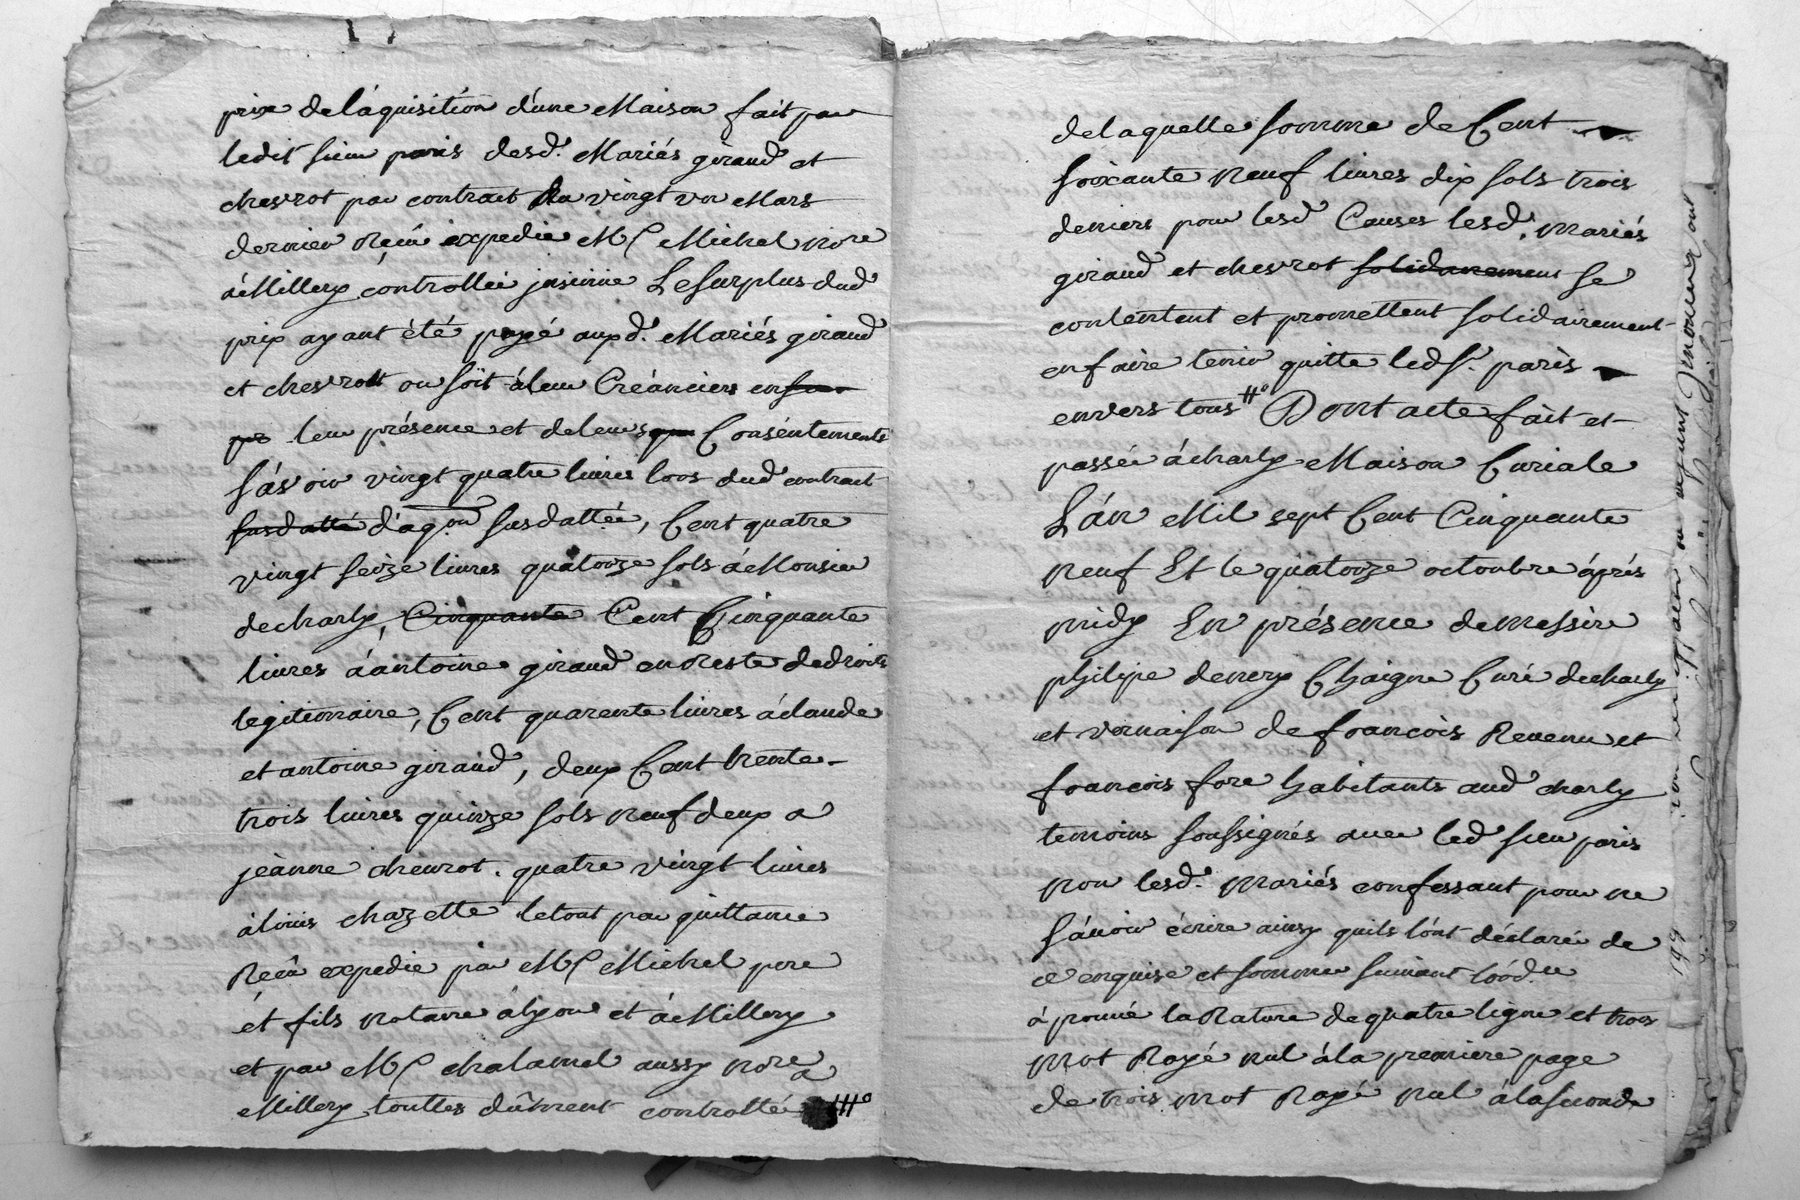 prix de láquisition d'une Maison fait par
ledit sieur paris desd. Mariés giraud et
chevrot par contrait du vingt un Mars
dernier Reçu expedié Me Michel nore
á Millery controllée jnsinüe Le surplus dud
prix ayant été payé auxd. Mariés giraud
et chevrott ou soit á leur Créanciers en
leur présence et de leurs Consentements
sávoir vingt quatre livres loos dud contrait
susdatté d'aqon susdattée, Cent quatre
vingt seize livres quatorze sols á Monsieur
decharly, Cinquante Cent Cinquante
livres á antoine giraud en Reste de droits
legitimaire, Cent quarente livres á claude
et antoine giraud, deux Cent trente
trois livres quinze sols neuf deux a
jeanne chevrot. quatre vingt livres
á louis chazette le tout par quittance
Reçû expedié par Me Michel pere
et fils notaire á lyon et á Millery
et par Me chalamel aussy nore a
Millery touttes dûment controllé IIIo
de laquelle somme de Cent
soixante neuf livres dix sols trois
deniers pour lesd Causes lesd. mariés
giraud et chevrot solidairement se
contentent et promettent solidairement
en faire tenir quitte led sr. paris
envers tous IIo Dont acte fait et
passée á charly Maison Curiale
L'án Mil sept Cent Cinquante
neuf Et le quatorze octoubre áprés
midy En présence de messire
philipe demery Chaigne Curé decharly
et vernaison de francois Revenu et
francois fore habitants aud charly
temoins soussignés avec led sieur paris
non lesd. mariés confessant pour ne
sávoir écrire ainsy quils l'ónt déclaré de
ce enquise et sommé suivant l'órd.ce
áprouvé la Rature de quatre ligne et trois
mot Rayé nul á la premiere page
de trois mot Rayé nul á la seconde